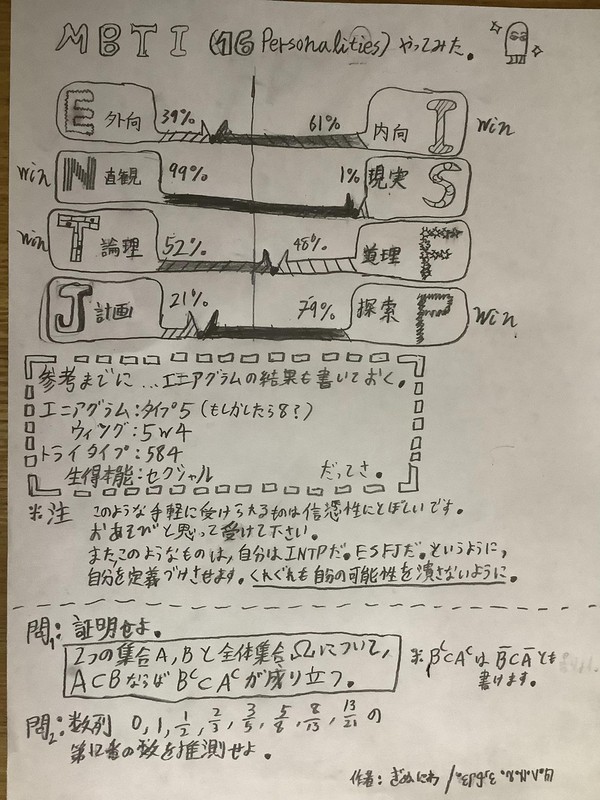 MBTI (16 Personalities) やってみた。
E 外向 39% 61% 内向 I win
win N 直観 99% 1% 現実 S
win T 論理 52% 48% 道理 F
J 計画 21% 79% 探索 P win
参考までに...エニアグラムの結果も書いておく。
エニアグラム:タイプ5(もしかしたら8?)
ウィング:5w4
トライタイプ:584
生得本能:セクシャル だってさ。
※注 このような手軽に受けられるものは信憑性にとぼしいです。
おあそびと思って受けて下さい。
また、このようなものは、自分はINTPだ。ESFJだ。というように、
自分を定義づけさせます。くれぐれも自分の可能性を潰さないように。
問1:証明せよ。
2つの集合A,Bと全体集合Ωについて、
A⊂BならばB^c⊂A^cが成り立つ。
※B^c⊂A^cはB̄⊂Āとも
書けます。
問2:数列 0, 1, 1/2, 2/3, 3/5, 5/8, 8/13, 13/21 の
第12番の数を推測せよ。
作者:ぎぬにわ